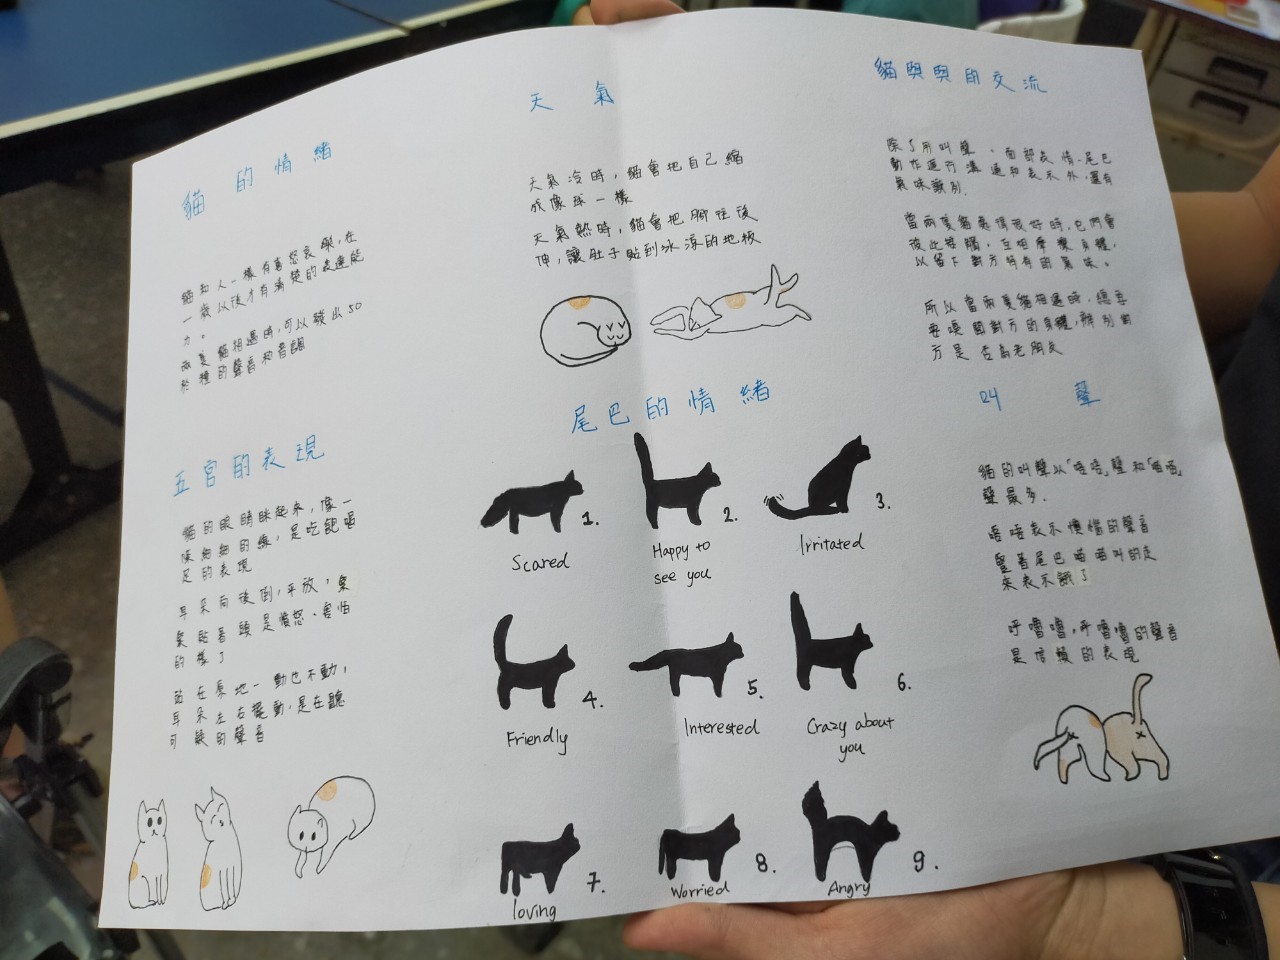 貓的情緒
貓和人一樣有喜怒哀樂,在
一歲以後才有清楚的表達能
力。
兩隻貓相遇時,可以發出50
多種的聲音和音調
五官的表現
貓的眼睛眯起來,像一
條細細的線,是吃飽喝
足的表現
耳朵向後倒,平放,緊
緊貼著頭是憤怒、害怕
的樣子
站在原地一動也不動,
耳朵左右擺動,是在聽
可疑的聲音
天氣
天氣冷時,貓會把自己縮
成像球一樣
天氣熱時,貓會把腳往後
伸,讓肚子貼到冰涼的地板
尾巴的情緒
1.
Scared
2.
Happy to
see you
3.
Irritated
4.
Friendly
5.
Interested
6.
Crazy about
you
7.
loving
8.
Worried
9.
Angry
貓與與的交流
除了用叫聲、面部表情、尾巴
動作進行溝通和表示外,還有
氣味識別.
當兩隻貓處得很好時,它們會
彼此搭腦,互相摩擦身體,
以留下對方特有的氣味。
所以當兩隻貓相遇時,總要
每嗅聞對方的身體,辨別對
方是否為老朋友
叫聲
貓的叫聲以「唔唔」聲和「喵喵」
聲最多.
唔唔表示懊惱的聲音
豎著尾巴喵喵叫的走
來表示餓了
呼嚕嚕,呼嚕嚕的聲音
是信賴的表現